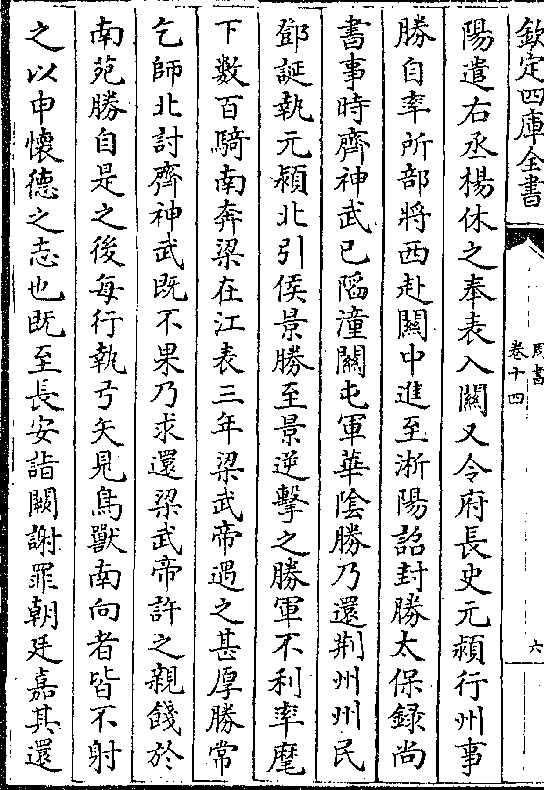 欽定四庫全書
周書
卷十四
六
陽遣右丞楊休之奉表入關又令府長史元頴行州事
勝自率所部將西赴關中進至淅陽詔封勝太保録尚
書事時齊神武已䧟潼關屯軍華隂勝乃還荆州州民
鄧誕執元頴北引侯景勝至景逆擊之勝軍不利率麾
下數百騎南奔梁在江表三年梁武帝遇之甚厚勝常
乞師北討齊神武既不果乃求還梁武帝許之親餞於
南苑勝自是之後每行執弓矢見鳥獸南向者皆不射
之以申懷德之志也既至長安詣闕謝罪朝廷嘉其還